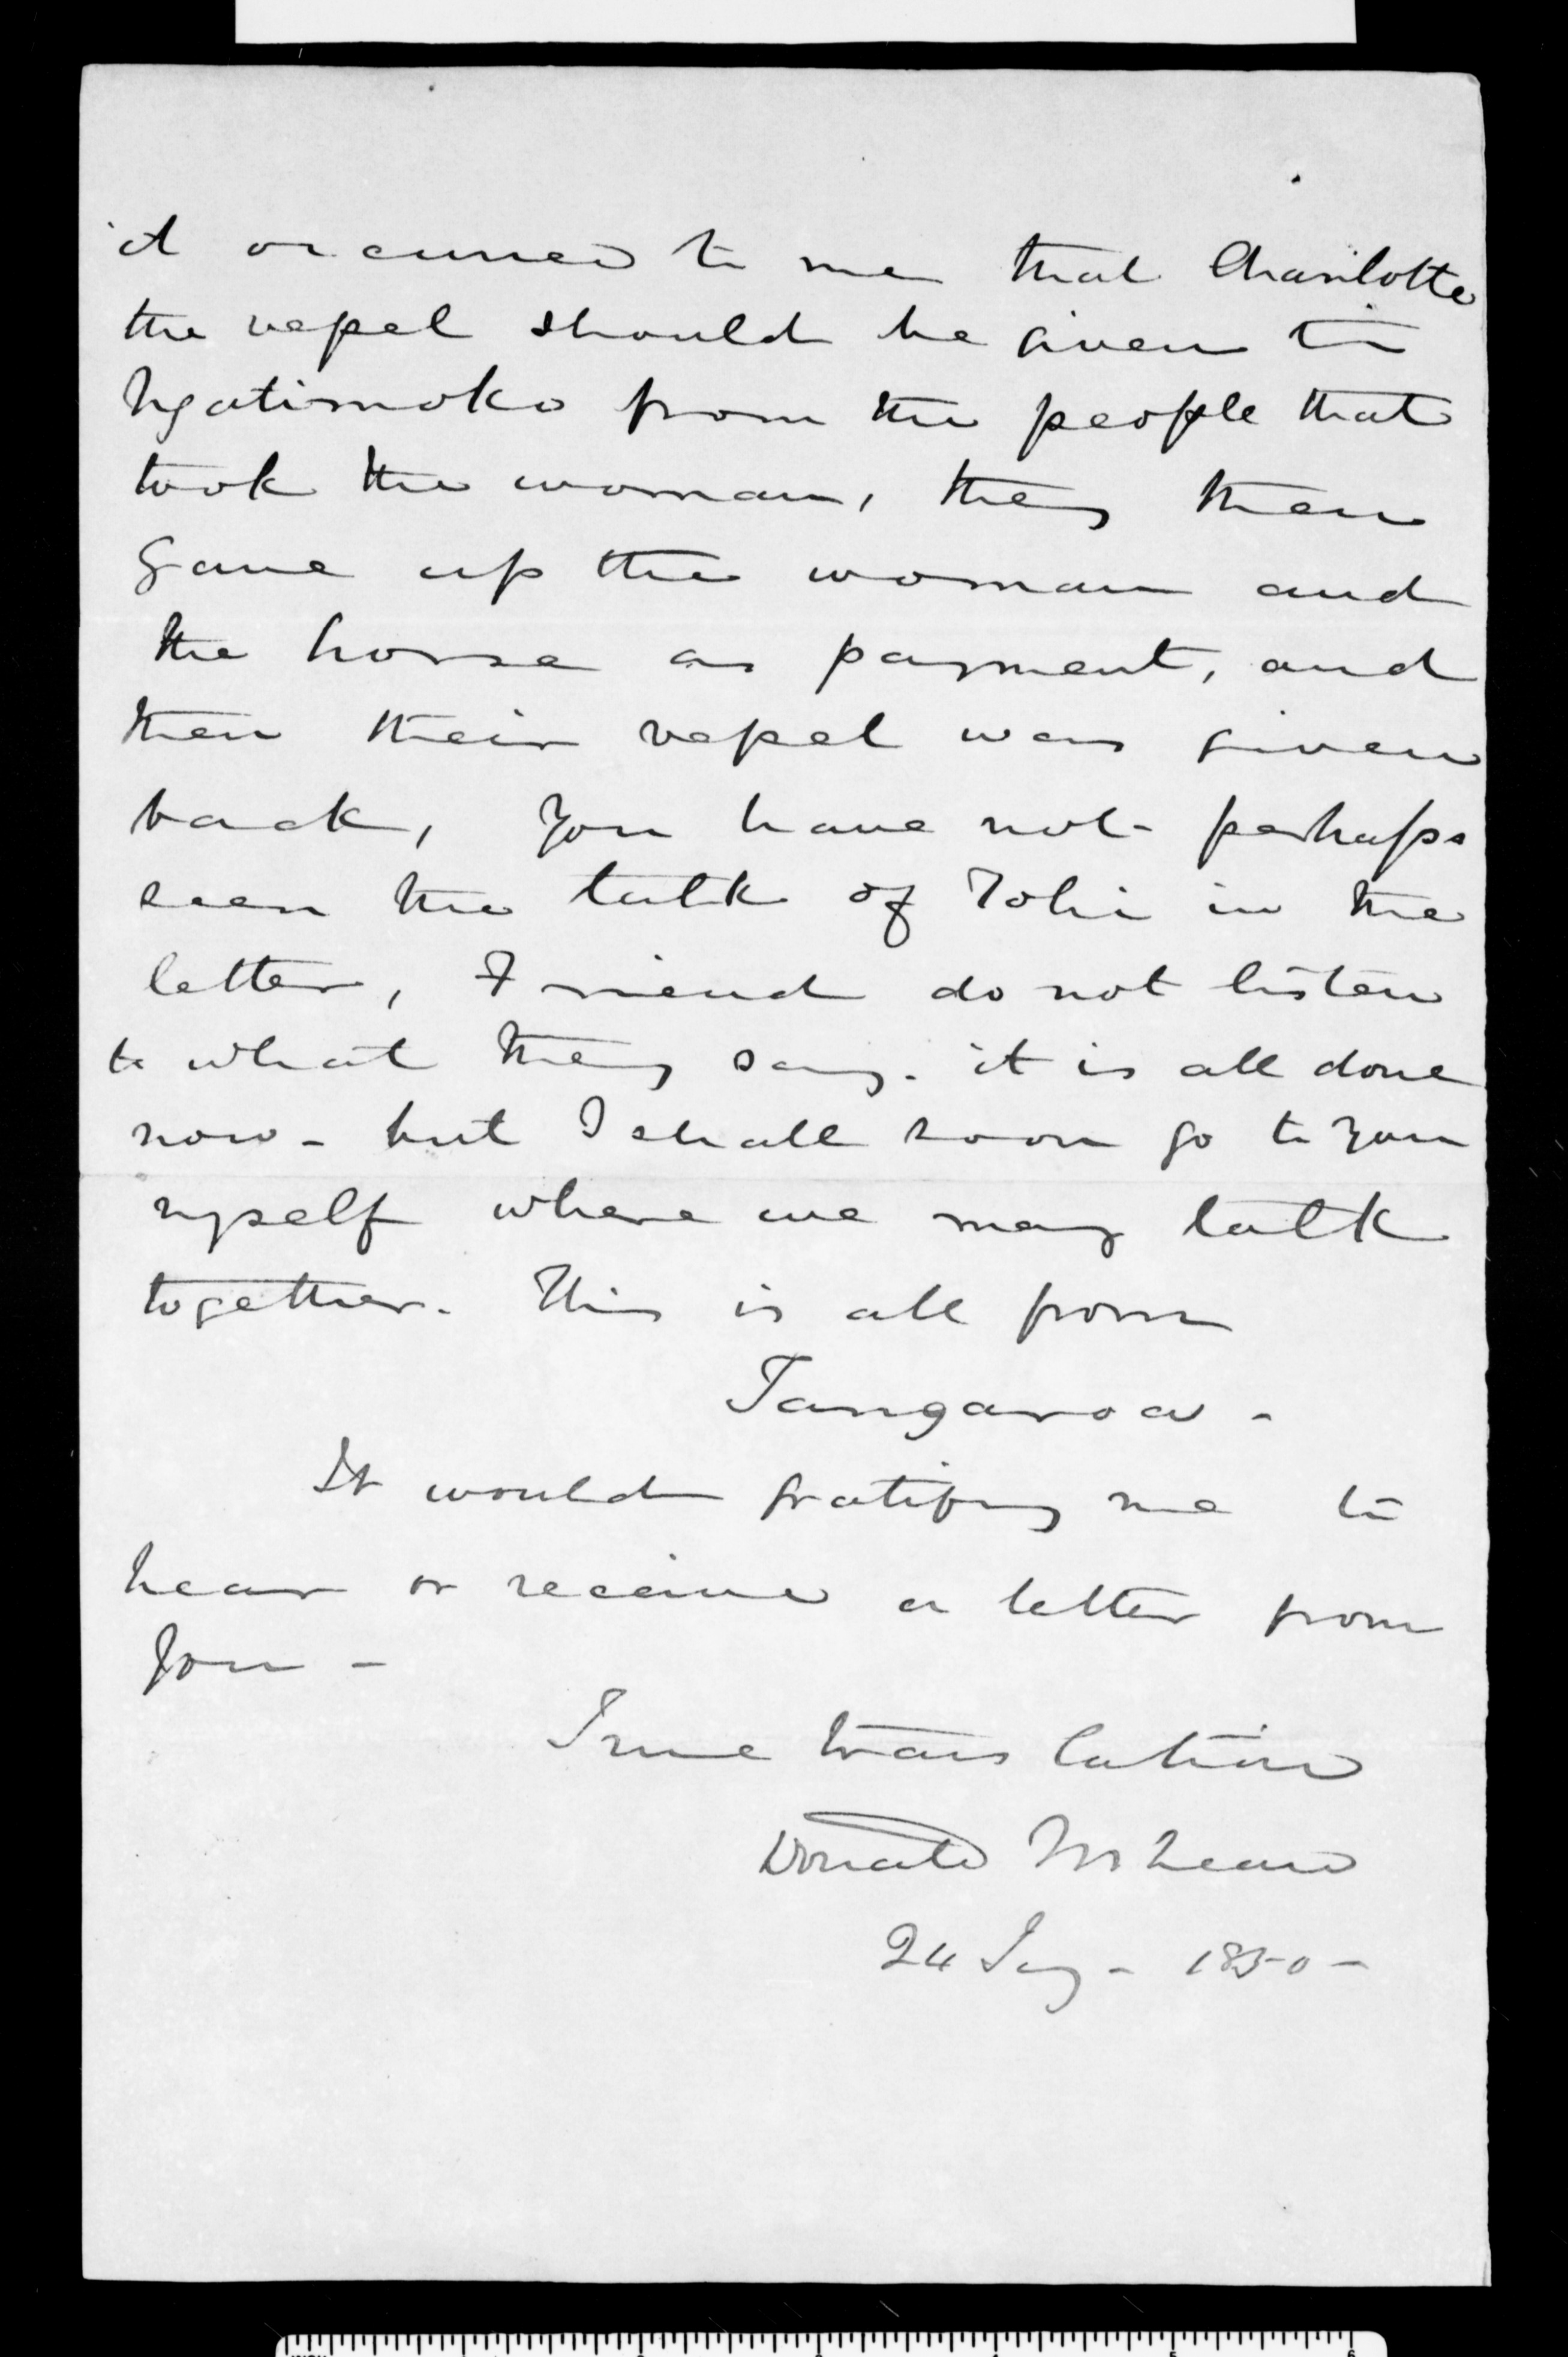 it occurred to me that Charlotte
the vessel should be given to
Ngatimoko from the people that
took the woman, they then
gave up the woman and
the horse as payment, and
then their vessel was given
back, You have not perhaps
seen the talk of Tohi in the
letter, Friend do not listen
to what they say. it is all done
now - but I shall soon go to you
myself where we may talk
together. This is all from
Tangaroa -
It would gratify me to
hear or receive a letter from
you -
True translation
Donald McLean
24 Jany - 1850 -